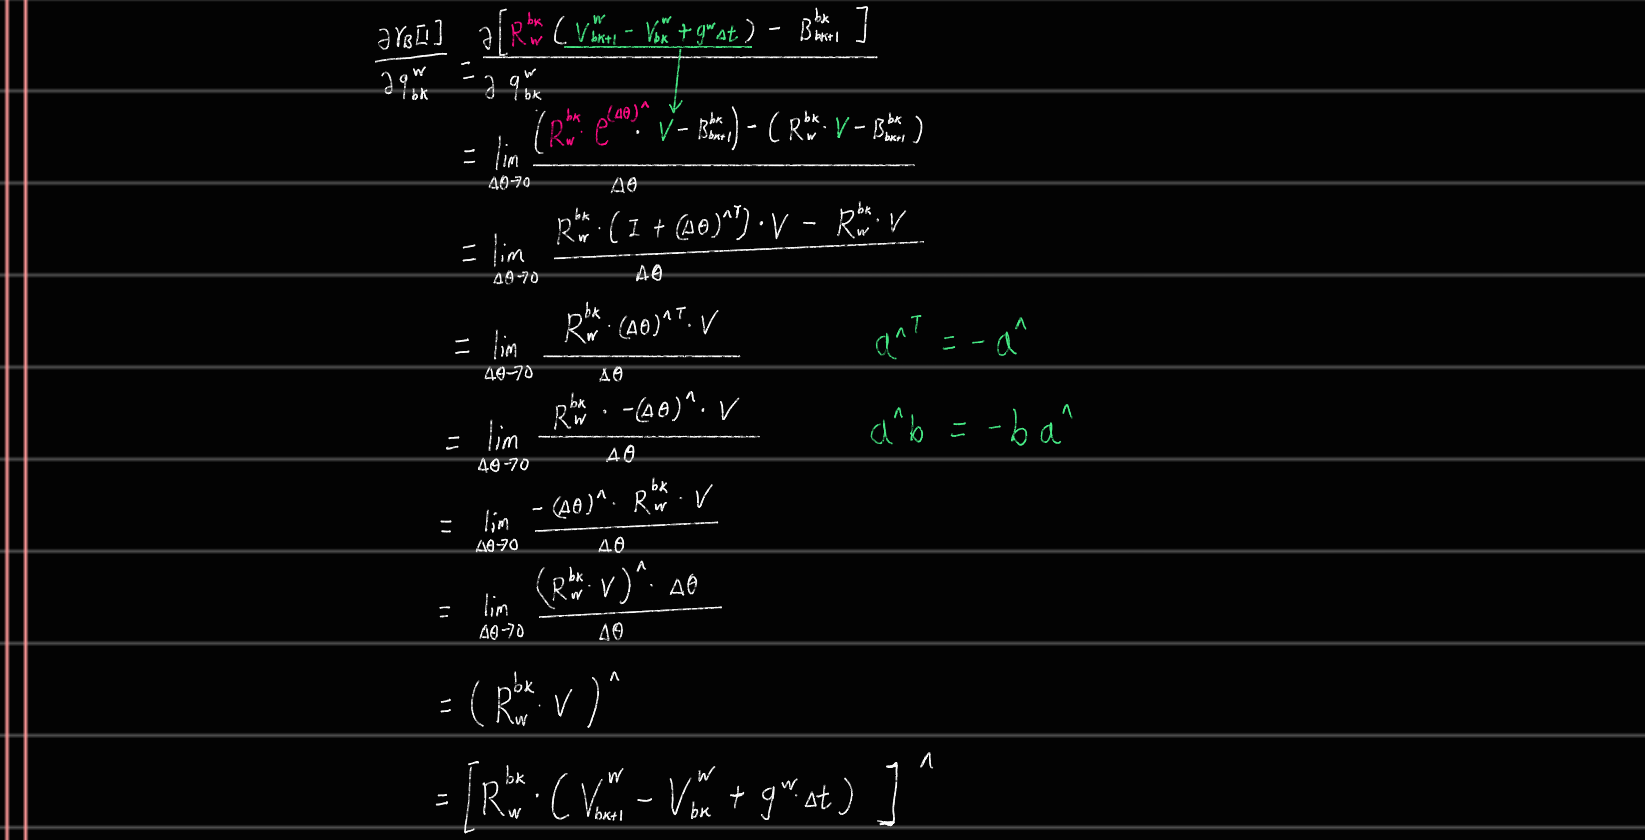 ∂r_B[I] / ∂q^w_{bk} = ∂[R^{bk}_w (V^w_{bk+1} - V^w_{bk} + g^w Δt) - B^{bk}_{bk+1}] / ∂q^w_{bk}
= lim_{Δθ→0} ((R^{bk}_w · e^{(Δθ)^∧} · V - B^{bk}_{bk+1}) - (R^{bk}_w · V - B^{bk}_{bk+1}) / Δθ
= lim_{Δθ→0} R^{bk}_w · (I + (Δθ)^{∧T}) · V - R^{bk}_w · V / Δθ
= lim_{Δθ→0} R^{bk}_w · (Δθ)^{∧T} · V / Δθ a^{∧T} = -a^∧
= lim_{Δθ→0} R^{bk}_w · -(Δθ)^∧ · V / Δθ a^∧ b = -b a^∧
= lim_{Δθ→0} -(Δθ)^∧ · R^{bk}_w · V / Δθ
= lim_{Δθ→0} (R^{bk}_w · V)^∧ · Δθ / Δθ
= (R^{bk}_w · V)^∧
= [R^{bk}_w · (V^w_{bk+1} - V^w_{bk} + g^w · Δt)]^∧